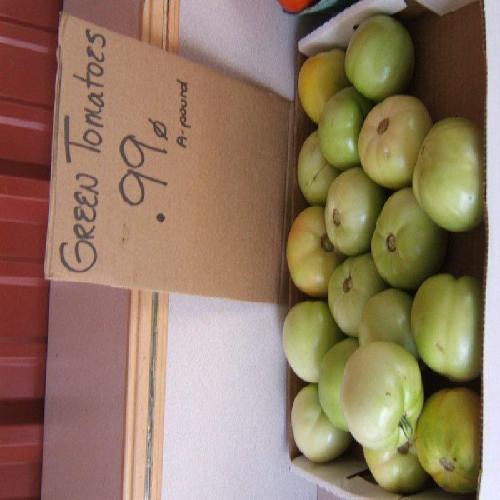 GREEN TOMATOES
.99¢
A-pound